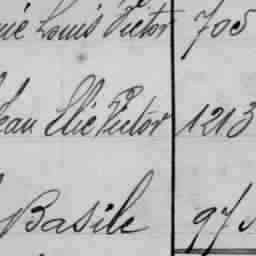 Louis Victor 705
Jean Elie Victor 1213
Basile 97